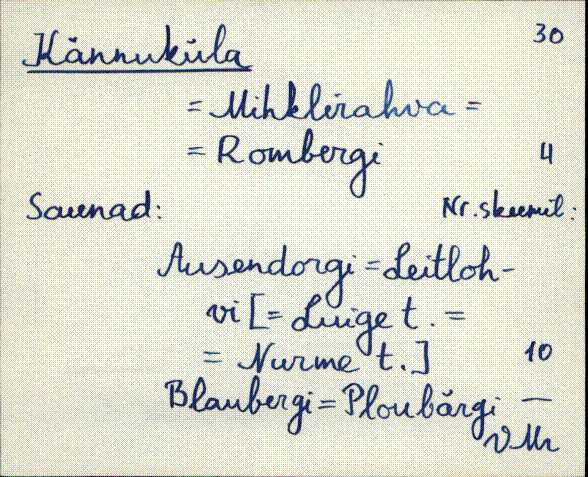 Kännuküla 30
= Mihklirahva =
= Rombergi 4
Saunad: Nr. skeemil:
Ausendorgi = Leitloh-
vi [= Luige t. =
= Nurme t.] 10
Blaubergi = Ploubärgi —
VMr